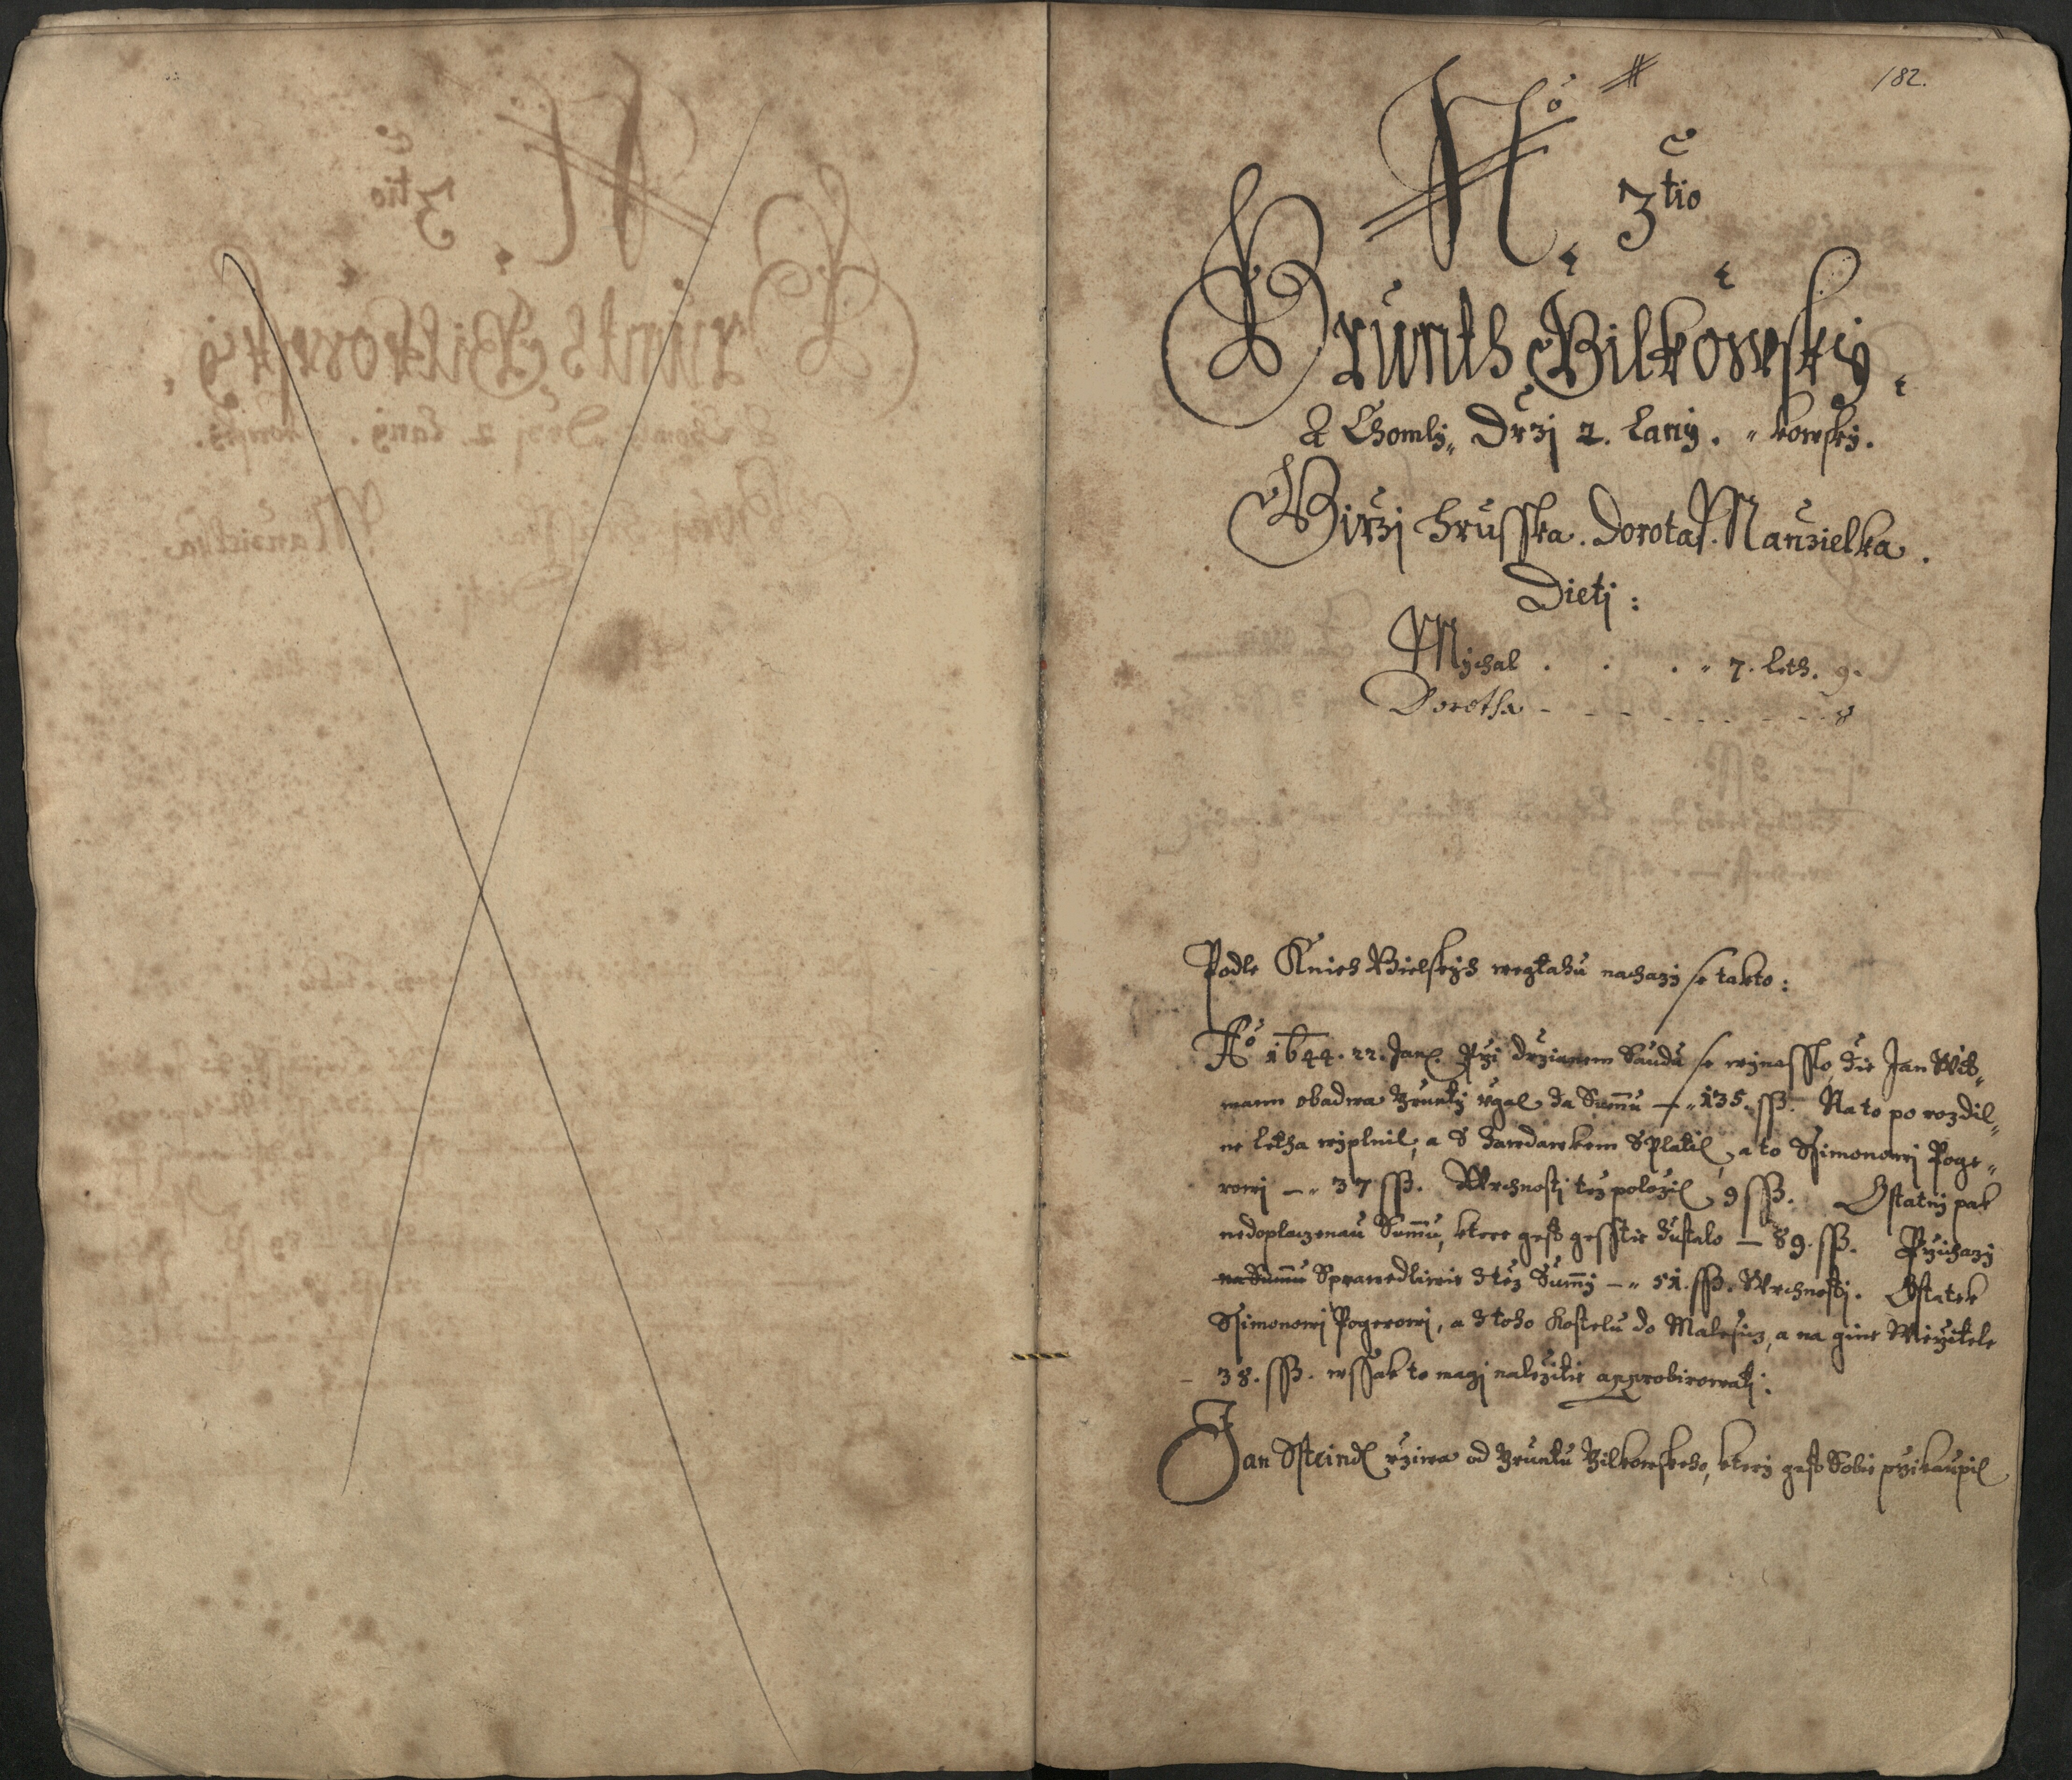 182.
No 3tio
Grunth Bilkowsky.
Z Chomly„ Drzj 2. Lany. „kowsky.
Girzj Hrusska. Dorota Manzielka.
Dietj:
Mychal . . . „ 7. Leth. 9.
Dorotha - - - - - - - - 8
Podle Knieh Bielskych wegtahu nachazy se takto:
Ao 1644. 22. Jan. Przi drzianem Saudu se wynesslo, zie Jan
mann obadwa Grunty ugal za Summu — „ 135. ssß. Na to po rozdil„
ne letha wyplnil, a S Zawdawkem Splatil, a to Ssimonowj Poge„
rowj — „ 37 ssß. Wrchnosti tez polozil 9 ssß. Ostatny pak
nedoplaczenau Summu, ktere gest gesstie zustalo — 89. ssß. Przichazy
na Summu Sprawedliwie z tez Summy — „ 51. ssß. Wrchnosti. Ostatek
Ssimonowj Pogerowj, a z toho Kostelu do Malesicz, a na gine Wierzitele
- 38. ssß. wssak to magj nalezitie approbirowatj:
Jan Ssteindl uziwa od Gruntu Bilkowskeho, ktery gest Sobie przikaupil